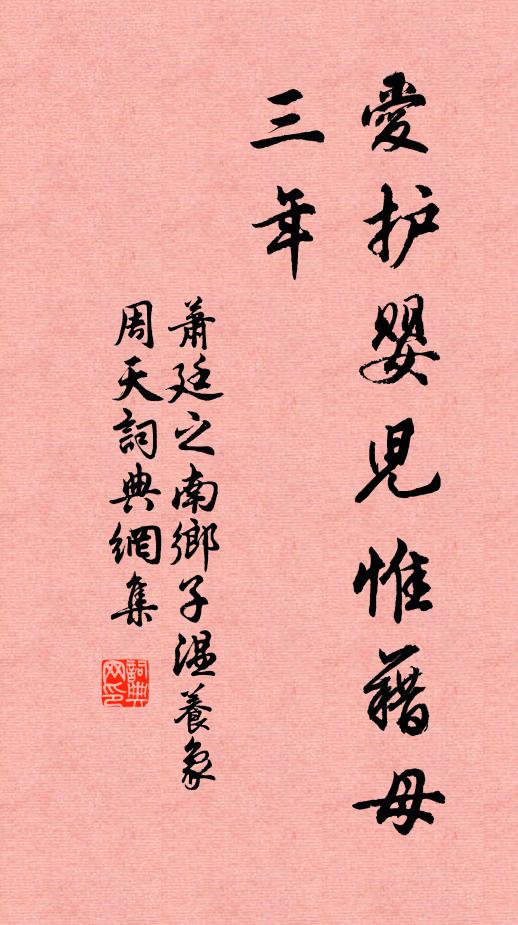 愛护嬰兒惟藉母
三年
蕭廷之南鄉子温養象
周天詞典網集
詞典
网印